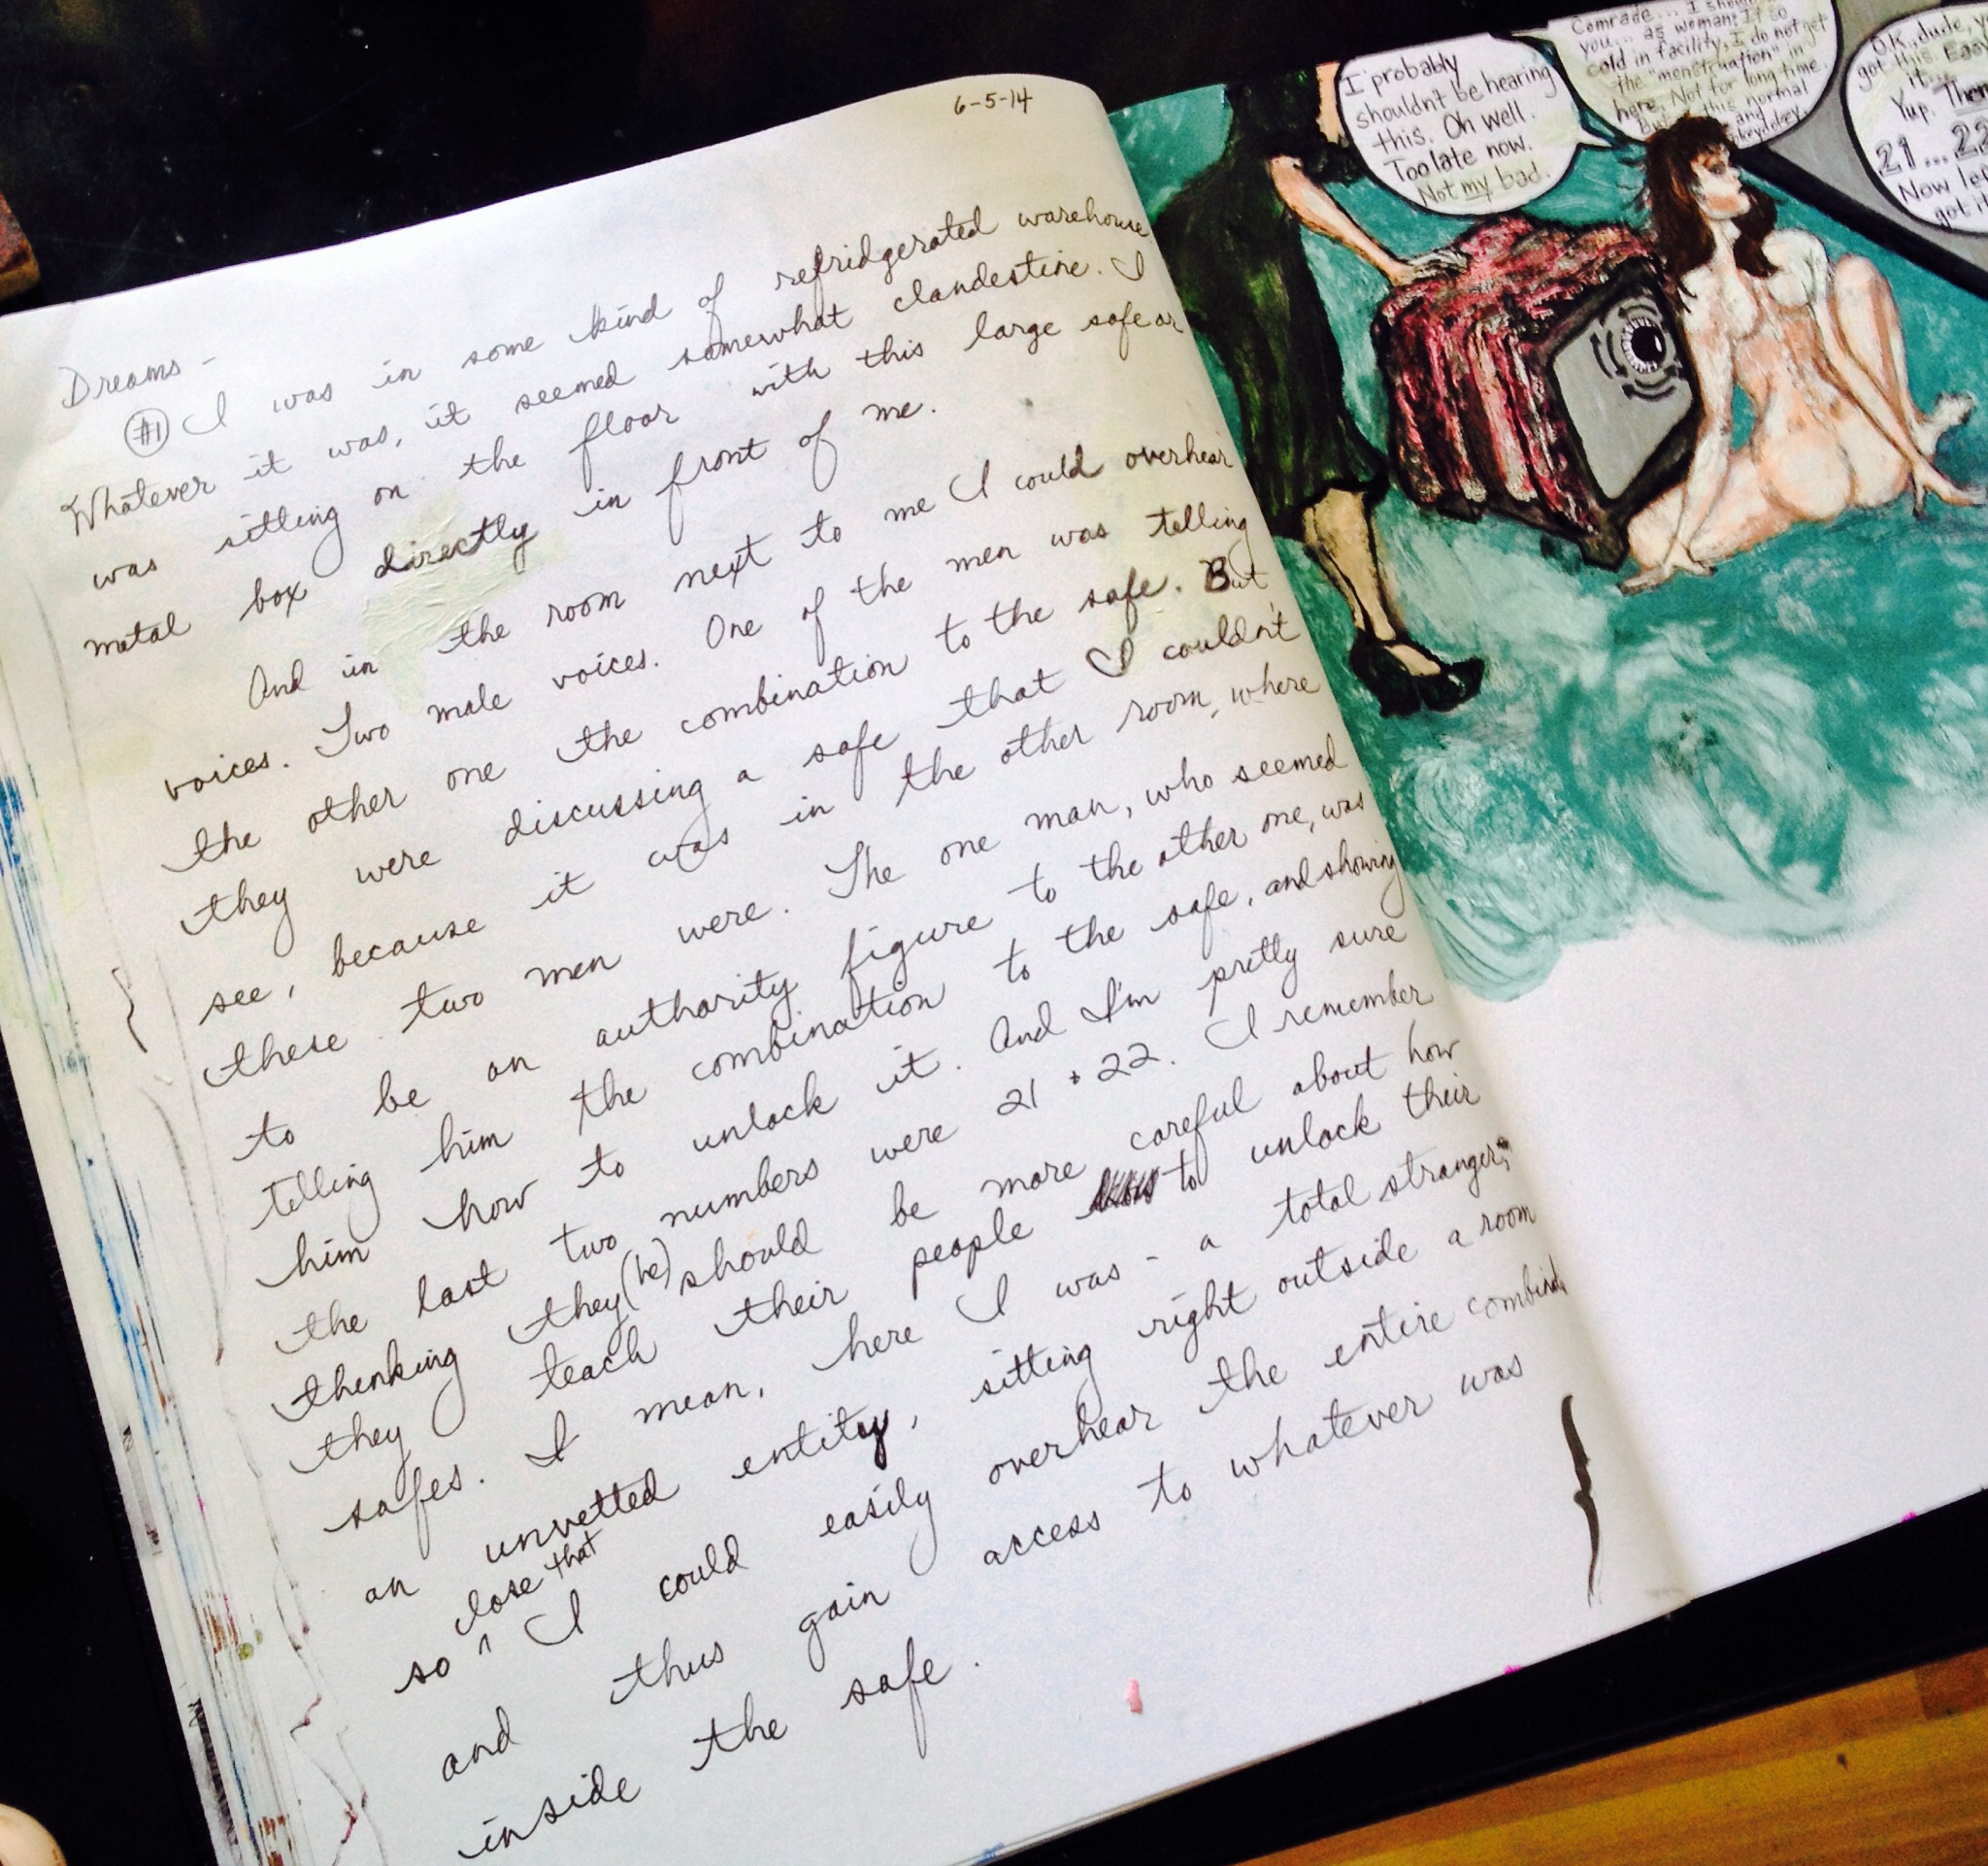 6-5-14
Dreams -
#1 I was in some kind of refridgerated warehouse
Whatever it was, it seemed somewhat clandestine. I
was sitting on the floor with this large safe or
metal box directly in front of me.
And in the room next to me I could overhear
voices. Two male voices. One of the men was telling
the other one the combination to the safe. But
they were discussing a safe that I couldn't
see, because it was in the other room, where
these two men were. The one man, who seemed
to be an authority figure to the other one, was
telling him the combination to the safe, and showing
him how to unlock it. And I'm pretty sure
the last two numbers were 21 + 22. I remember
thinking they (he) should be more careful about how
they teach their people to unlock their
safes. I mean, here I was - a total stranger,
an unvetted entity, sitting right outside a room
so close that I could easily overhear the entire
and thus gain access to whatever was
inside the safe.
I probably
shouldn't be hearing
this. Oh well.
Too late now.
Not my bad.
Comrade... I
you... as woman? It so
cold in facility, I do not get
the "menstruation" in
here. Not for long time.
this normal
and
OK, dude,
got this.
it...
Yup.
21... 22
Now
got